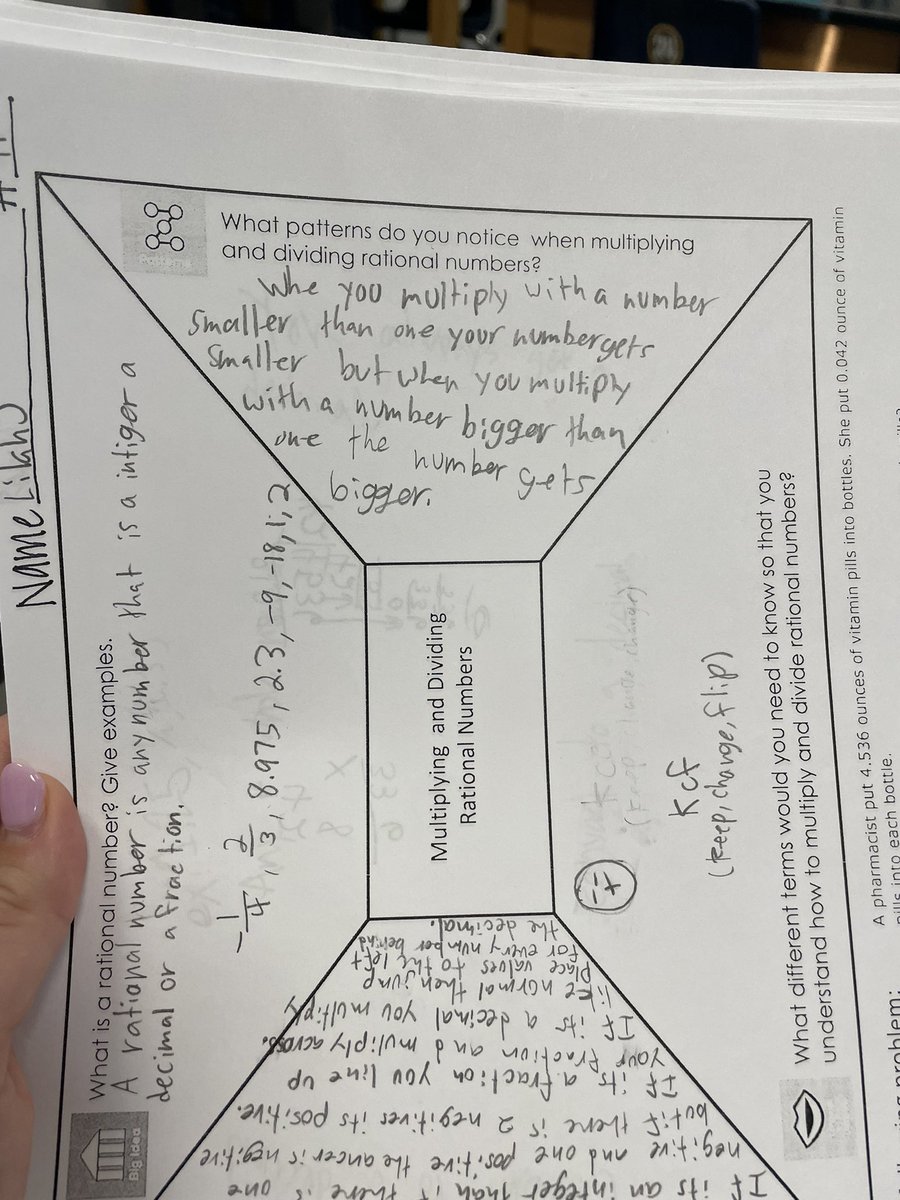 Name Lilahu
# 11
What is a rational number? Give examples.
A rational number is any number that is a intiger a
decimal or a fraction.
-1/4, 2/3, 8.975, 2.3, -9, -18, 1, 2
Big Idea
What patterns do you notice when multiplying
and dividing rational numbers?
Patterns
Whe you multiply with a number
smaller than one your number gets
smaller but when you multiply
with a number bigger than
one the number gets
bigger.
Multiplying and Dividing
Rational Numbers
If its an integer than if there is one
negitive and one positive the ancer is negitive
but if there is 2 negitives its positive.
If its a fraction you line up
your fraction and multiply across.
If its a decimal you multiply
like normal then jump
place values to the left
for every number behind
the decimal.
Kcf
(keep, change, flip)
What different terms would you need to know so that you
understand how to multiply and divide rational numbers?
A pharmacist put 4.536 ounces of vitamin pills into bottles. She put 0.042 ounce of vitamin
pills into each bottle.
problem: